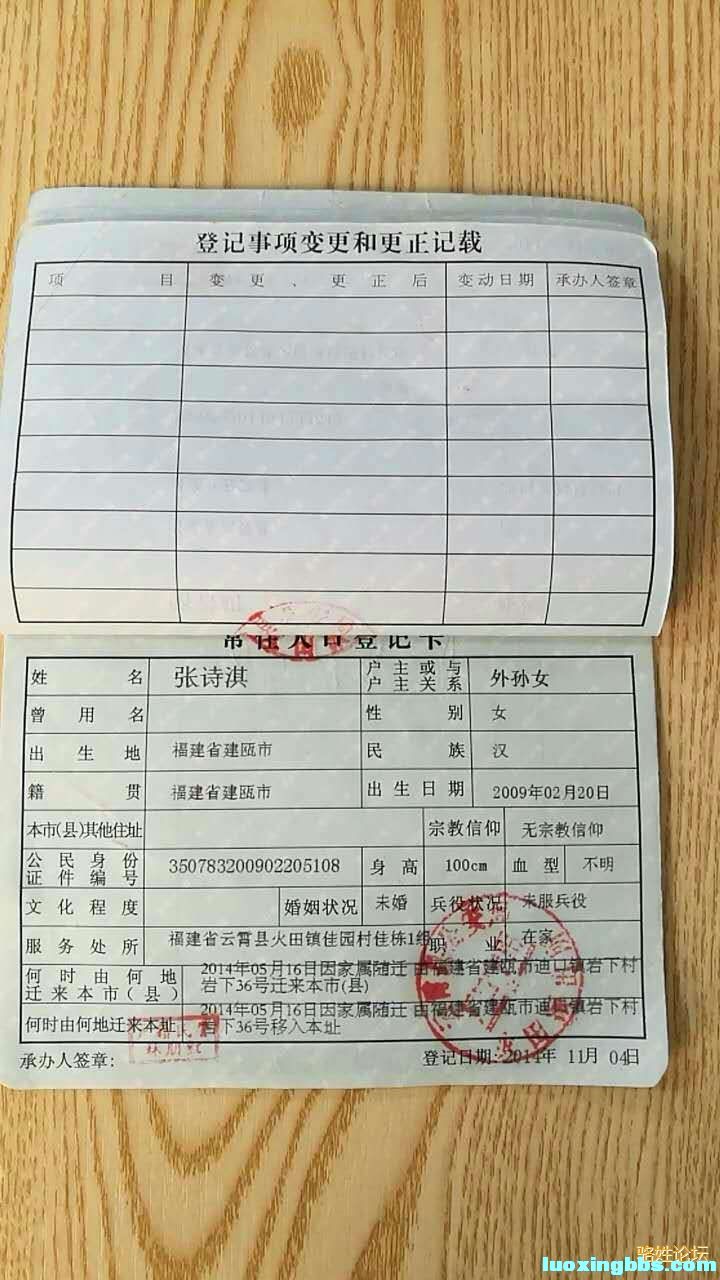 登记事项变更和更正记载
项 目 变 更 、 更 正 后 变动日期 承办人签章
常住人口登记卡
姓 名 张诗淇 户主或与户主关系 外孙女
曾 用 名 性 别 女
出 生 地 福建省建瓯市 民 族 汉
籍 贯 福建省建瓯市 出生日期 2009年02月20日
本市(县)其他住址 宗教信仰 无宗教信仰
公民身份证件编号 350783200902205108 身 高 100cm 血 型 不明
文化程度 婚姻状况 未婚 兵役状况 未服兵役
服务处所 福建省云霄县火田镇佳园村佳栋1组 职 业 在家
何时由何地迁来本市(县) 2014年05月16日因家属随迁 由福建省建瓯市迪口镇岩下村
岩下36号迁来本市(县)
何时由何地迁来本址 2014年05月16日因家属随迁 由福建省建瓯市迪口镇岩下村
岩下36号移入本址
承办人签章： 登记日期：2014年 11月 04日
骆姓论坛
luoxingbbs.com